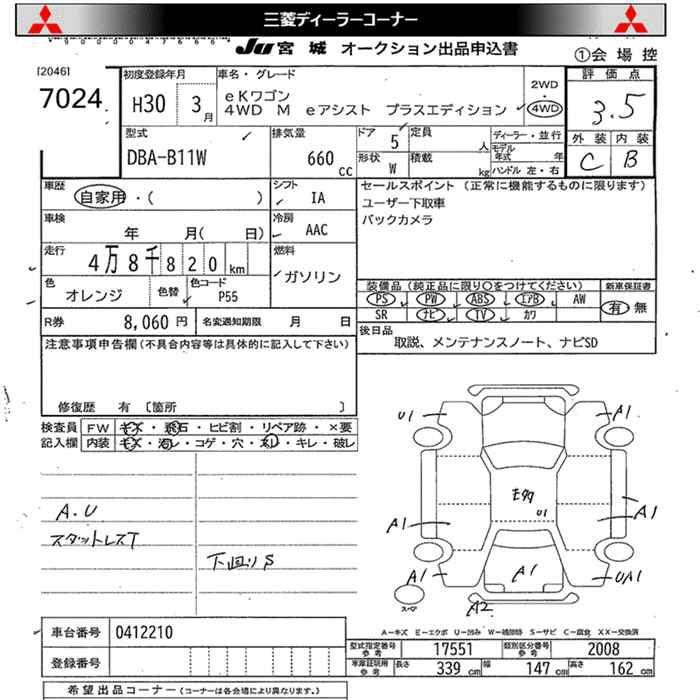 三菱ディーラーコーナー
Ju 宮 城 オークション出品申込書
①会 場 控
[2046]
7024
初度登録年月
H30 3月
車名・グレード
eKワゴン
4WD M eアシスト プラスエディション
2WD
4WD
評 価 点
3.5
外 装 内 装
C B
型式
DBA-B11W
排気量
660 cc
ドア 5
定員 人
形状 W
積載 kg
ディーラー・並行
モデル年式 年
ハンドル 左・右
車歴
自家用・( )
シフト
IA
車検
年 月( 日)
冷房
AAC
走行
4万8千820km
燃料
ガソリン
色
オレンジ
色替
色コード
P55
R券 8,060円
名変通知期限 月 日
セールスポイント (正常に機能するものに限ります)
ユーザー下取車
バックカメラ
装備品(純正品に限り○をつけてください)
新車保証書
PS PW ABS エアB AW
SR ナビ TV カワ
有・無
後日品
取説、メンテナンスノート、ナビSD
注意事項申告欄(不具合内容等は具体的に記入して下さい)
修復歴 有 〔箇所 〕
検査員
記入欄
FW キズ・飛石・ヒビ割・リペア跡・×要
内装 キズ・汚レ・コゲ・穴・スレ・キレ・破レ
A.U
スタットレスT
下回りS
U1
A1
U1
A1
A1
A1
A1
A1
UA1
A2
スペア
A―キズ E―エクボ U―凹み W―補修跡 S―サビ C―腐蝕 XX―交換済
車台番号 0412210
登録番号
型式指定番号 参考 17551
類別区分番号 参考 2008
車庫証明用 参考
長さ 339 cm
幅 147 cm
高さ 162 cm
希望出品コーナー (コーナーは各会場により異なります。)